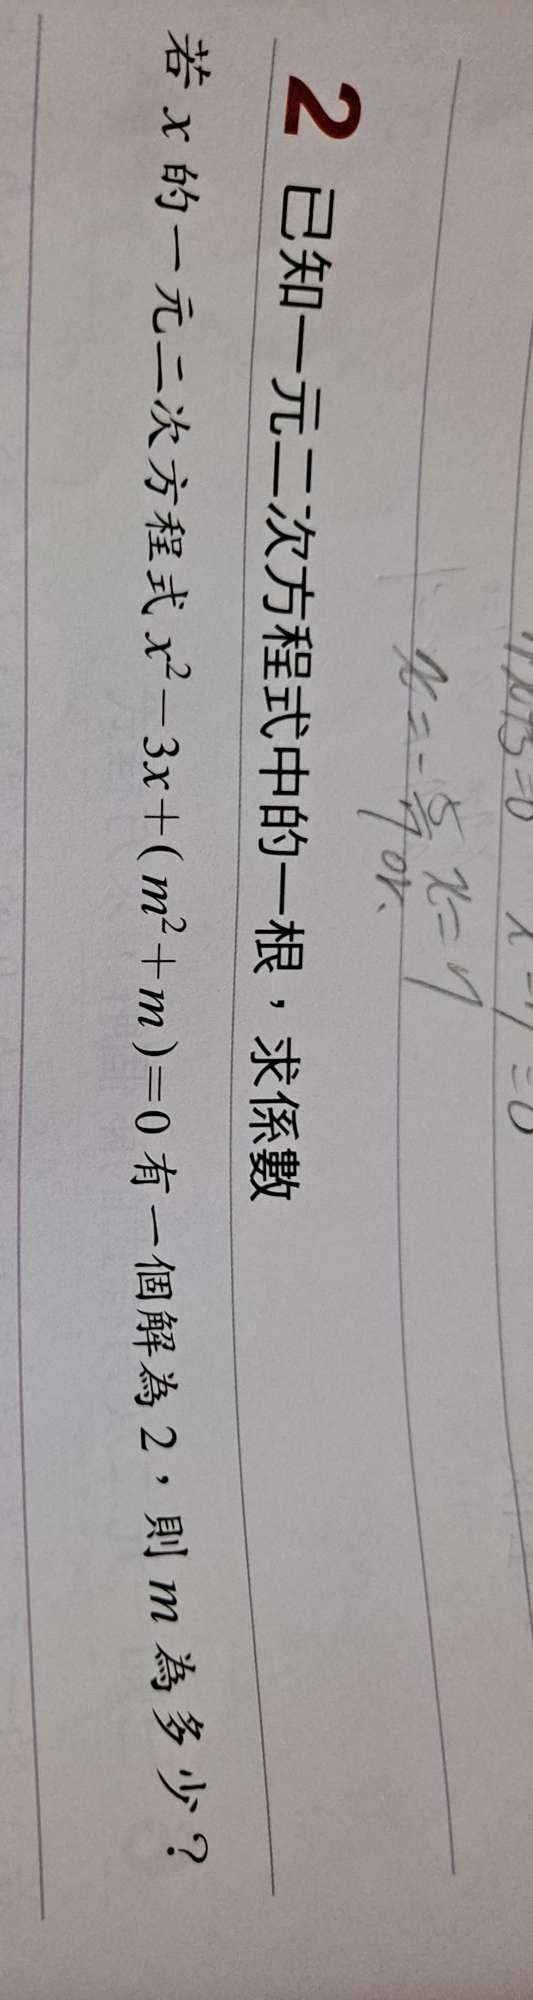 x-7=0
x=-5/7 or. x=7
2 已知一元二次方程式中的一根，求係數
若 x 的一元二次方程式 x²-3x+(m²+m)=0 有一個解為 2，則 m 為多少？